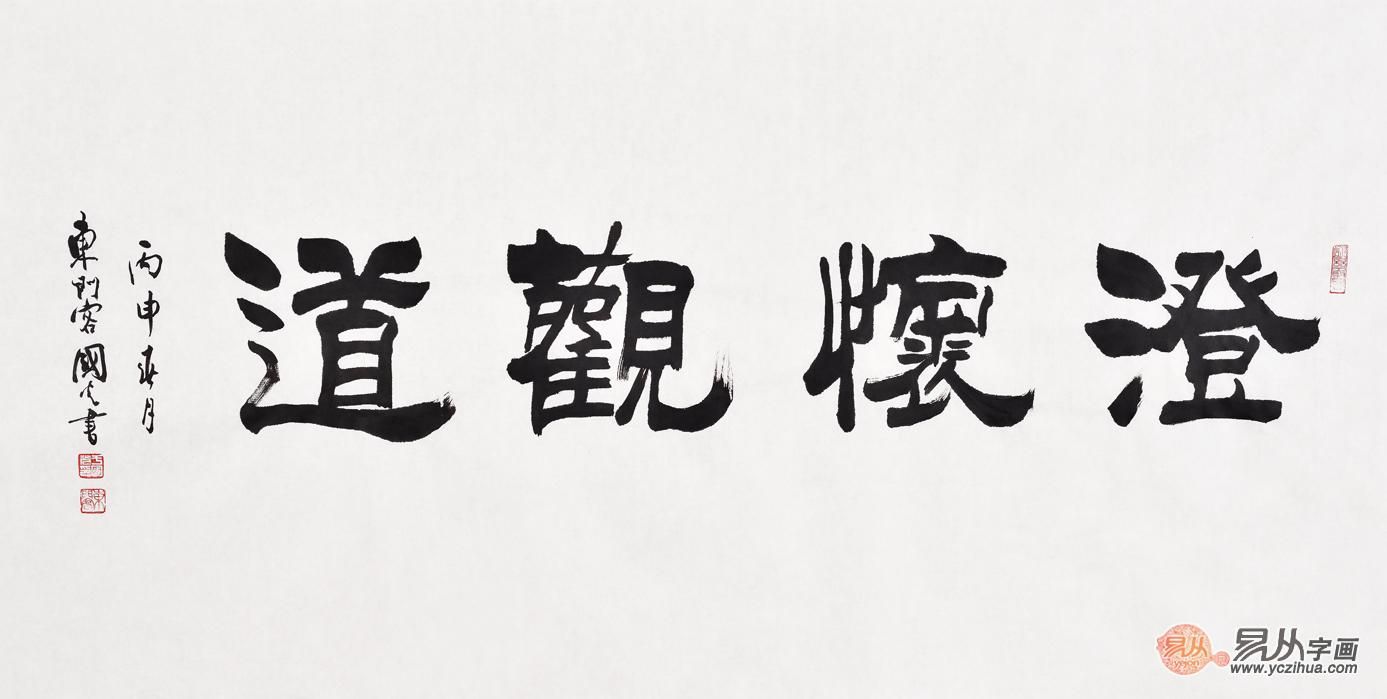 澄懷觀道
丙申春月
東門客國光書
易从字画
www.yczihua.com